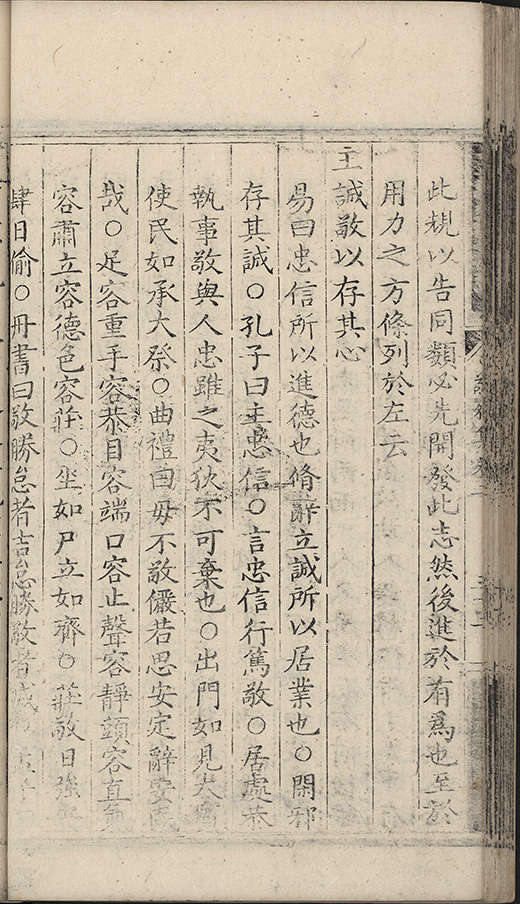 此規以告同類必先開發此志然後進於有爲也至於
用力之方條列於左云
主誠敬以存其心
易曰忠信所以進德也脩辭立誠所以居業也○閑邪
存其誠○孔子曰主忠信○言忠信行篤敬○居處恭
執事敬與人忠雖之夷狄不可棄也○出門如見大賓
使民如承大祭○曲禮曰毋不敬儼若思安定辭安民
哉○足容重手容恭目容端口容止聲容靜頭容直氣
容肅立容德色容莊○坐如尸立如齊○莊敬日強安
肆日偷○丹書曰敬勝怠者吉怠勝敬者滅